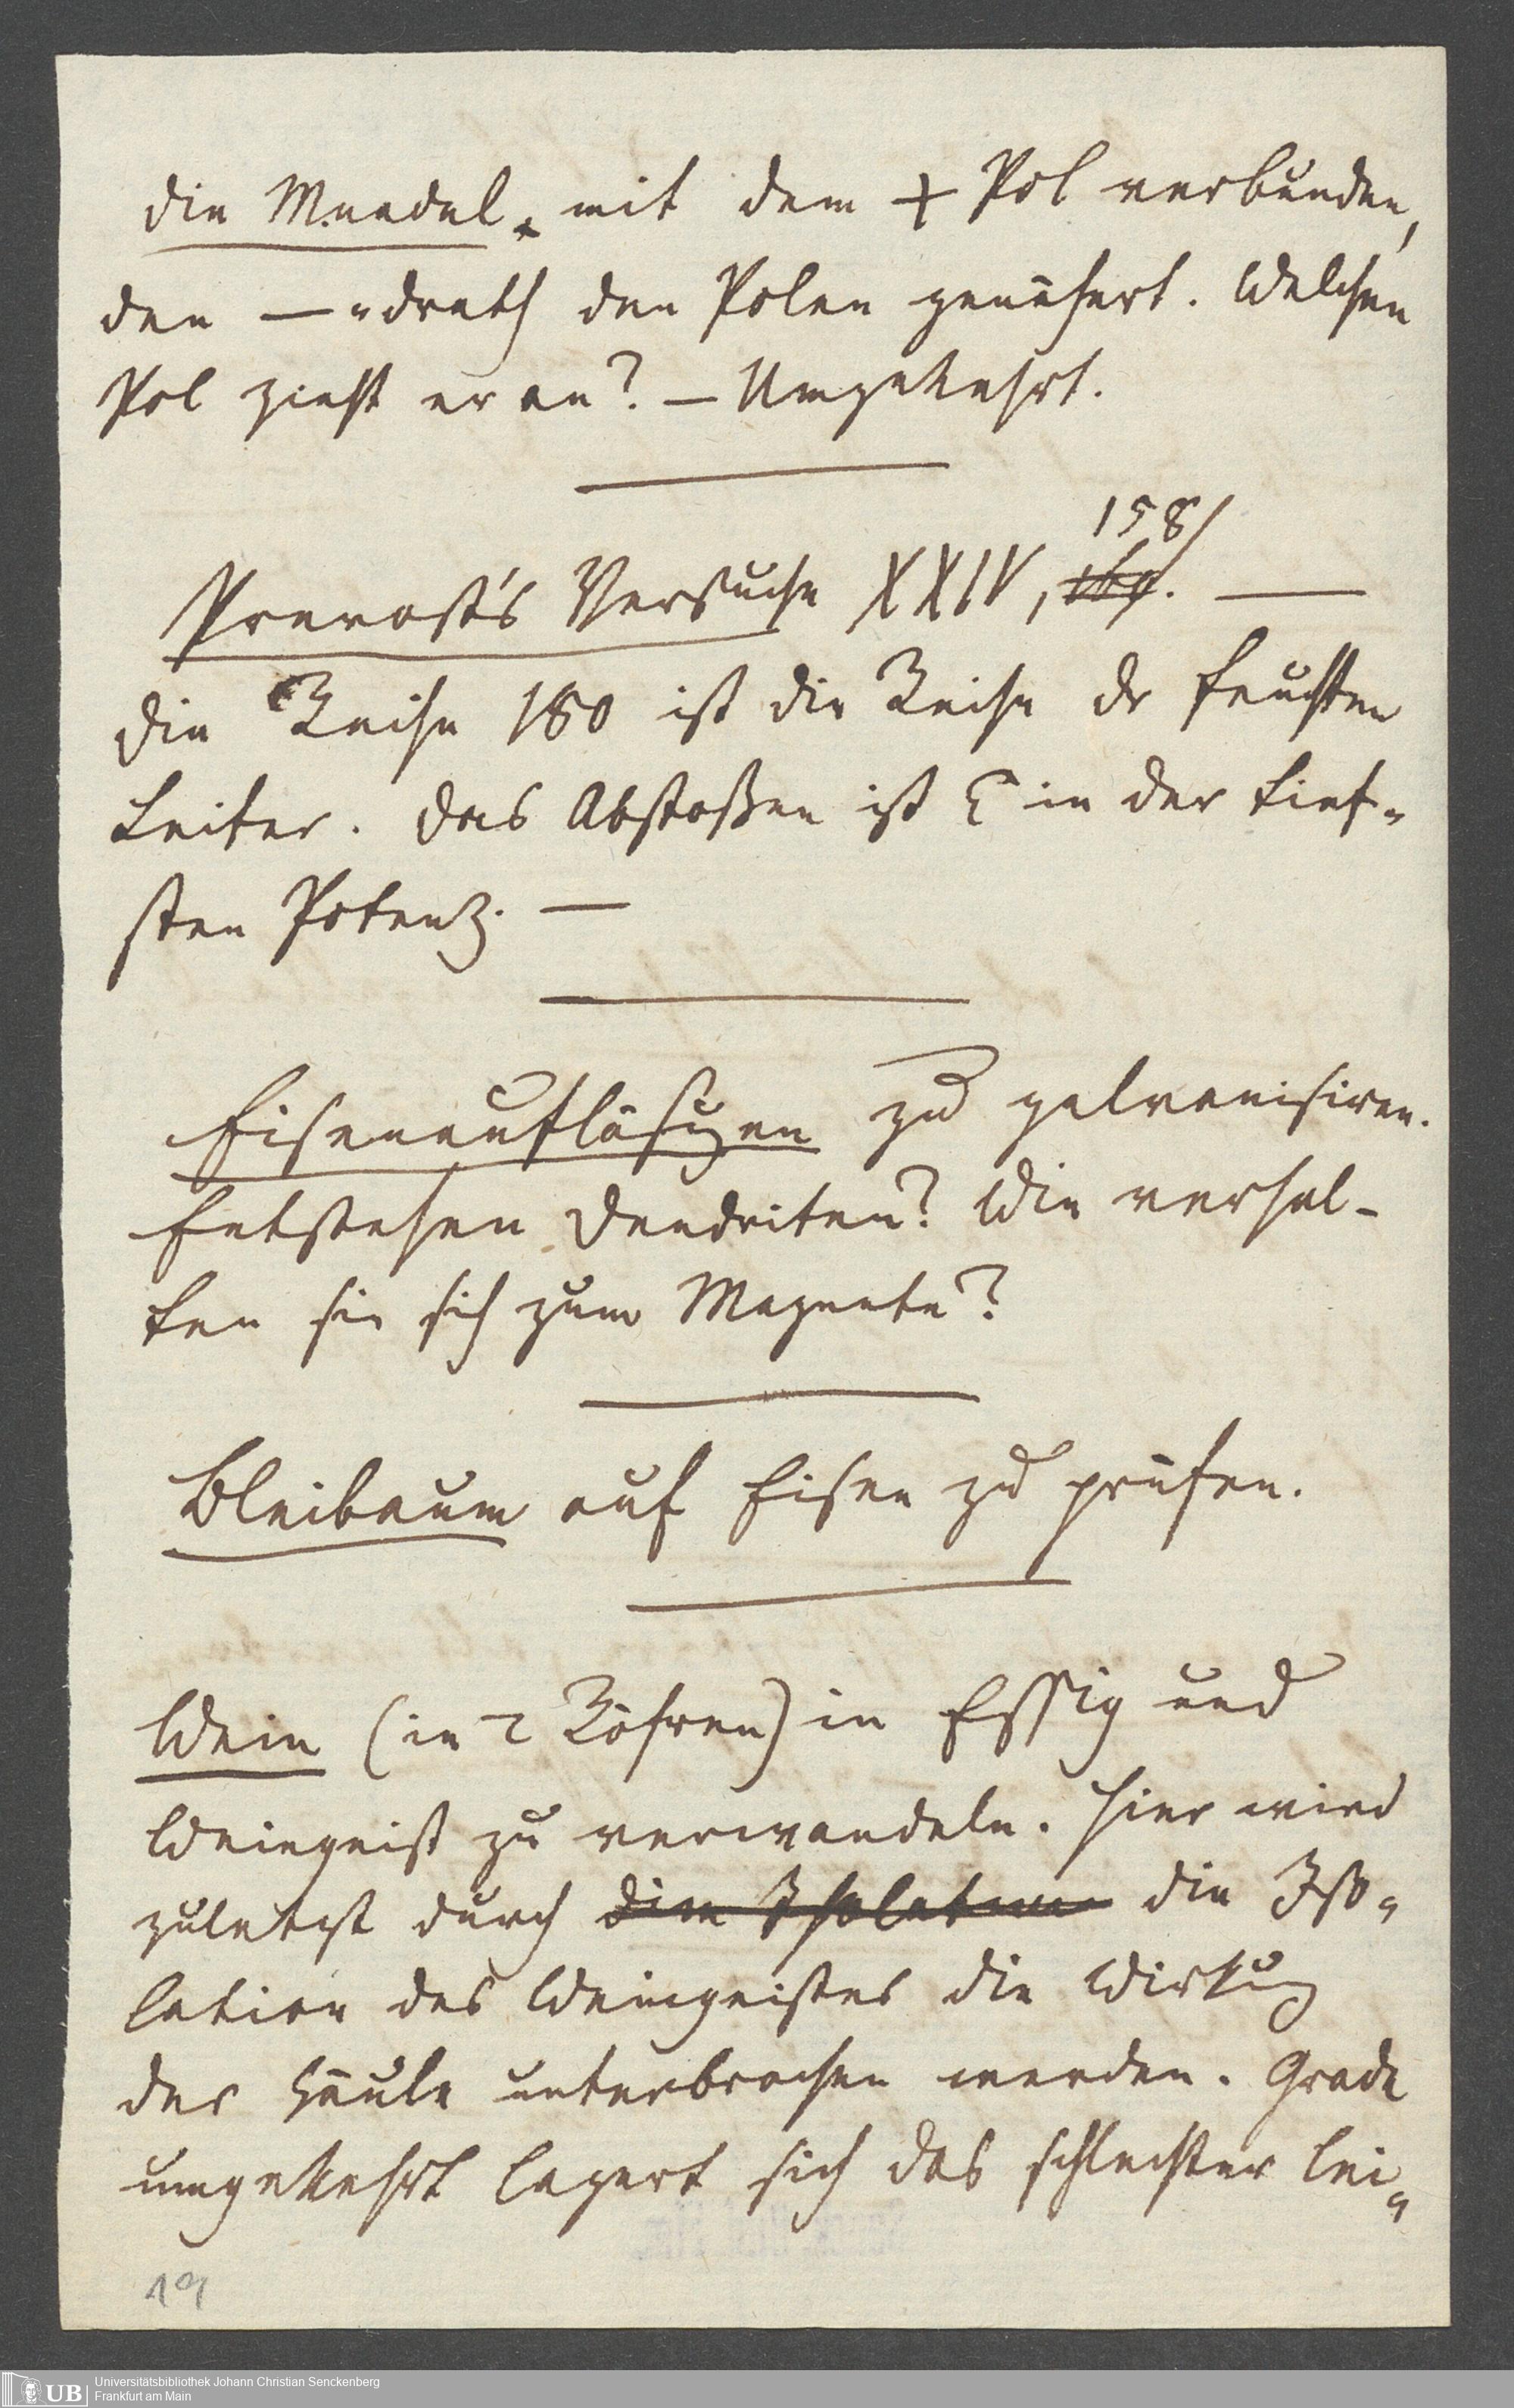 die M.nadel, mit dem + Pol verbunden,
den — "drath den Polen genähert. Welchen
Pol zieht er an? — Umgekehrt.
158/
Prevost's Versuche XXIV, 
Die Reihe 180 ist die Reihe der feuchten
Leiter. Das Abstoßen ist in der tief-
sten Potenz. —
Eisenauflösungen zu galvanisiren.
Entstehen Dendriten? Wie verhal-
ten sie sich zum Magnete?
Bleibaum auf Eisen zu prüfen.
Wein (in 2 Röhren) in Essig und
Weingeist zu verwandeln. Hier wird
zuletzt durch die Isolation die Iso-
lation des Weingeistes die Wirkung
der Säule unterbrochen werden. Grade
umgekehrt lagert sich das schlechter lei-
19
UB Universitätsbibliothek Johann Christian Senckenberg
Frankfurt am Main